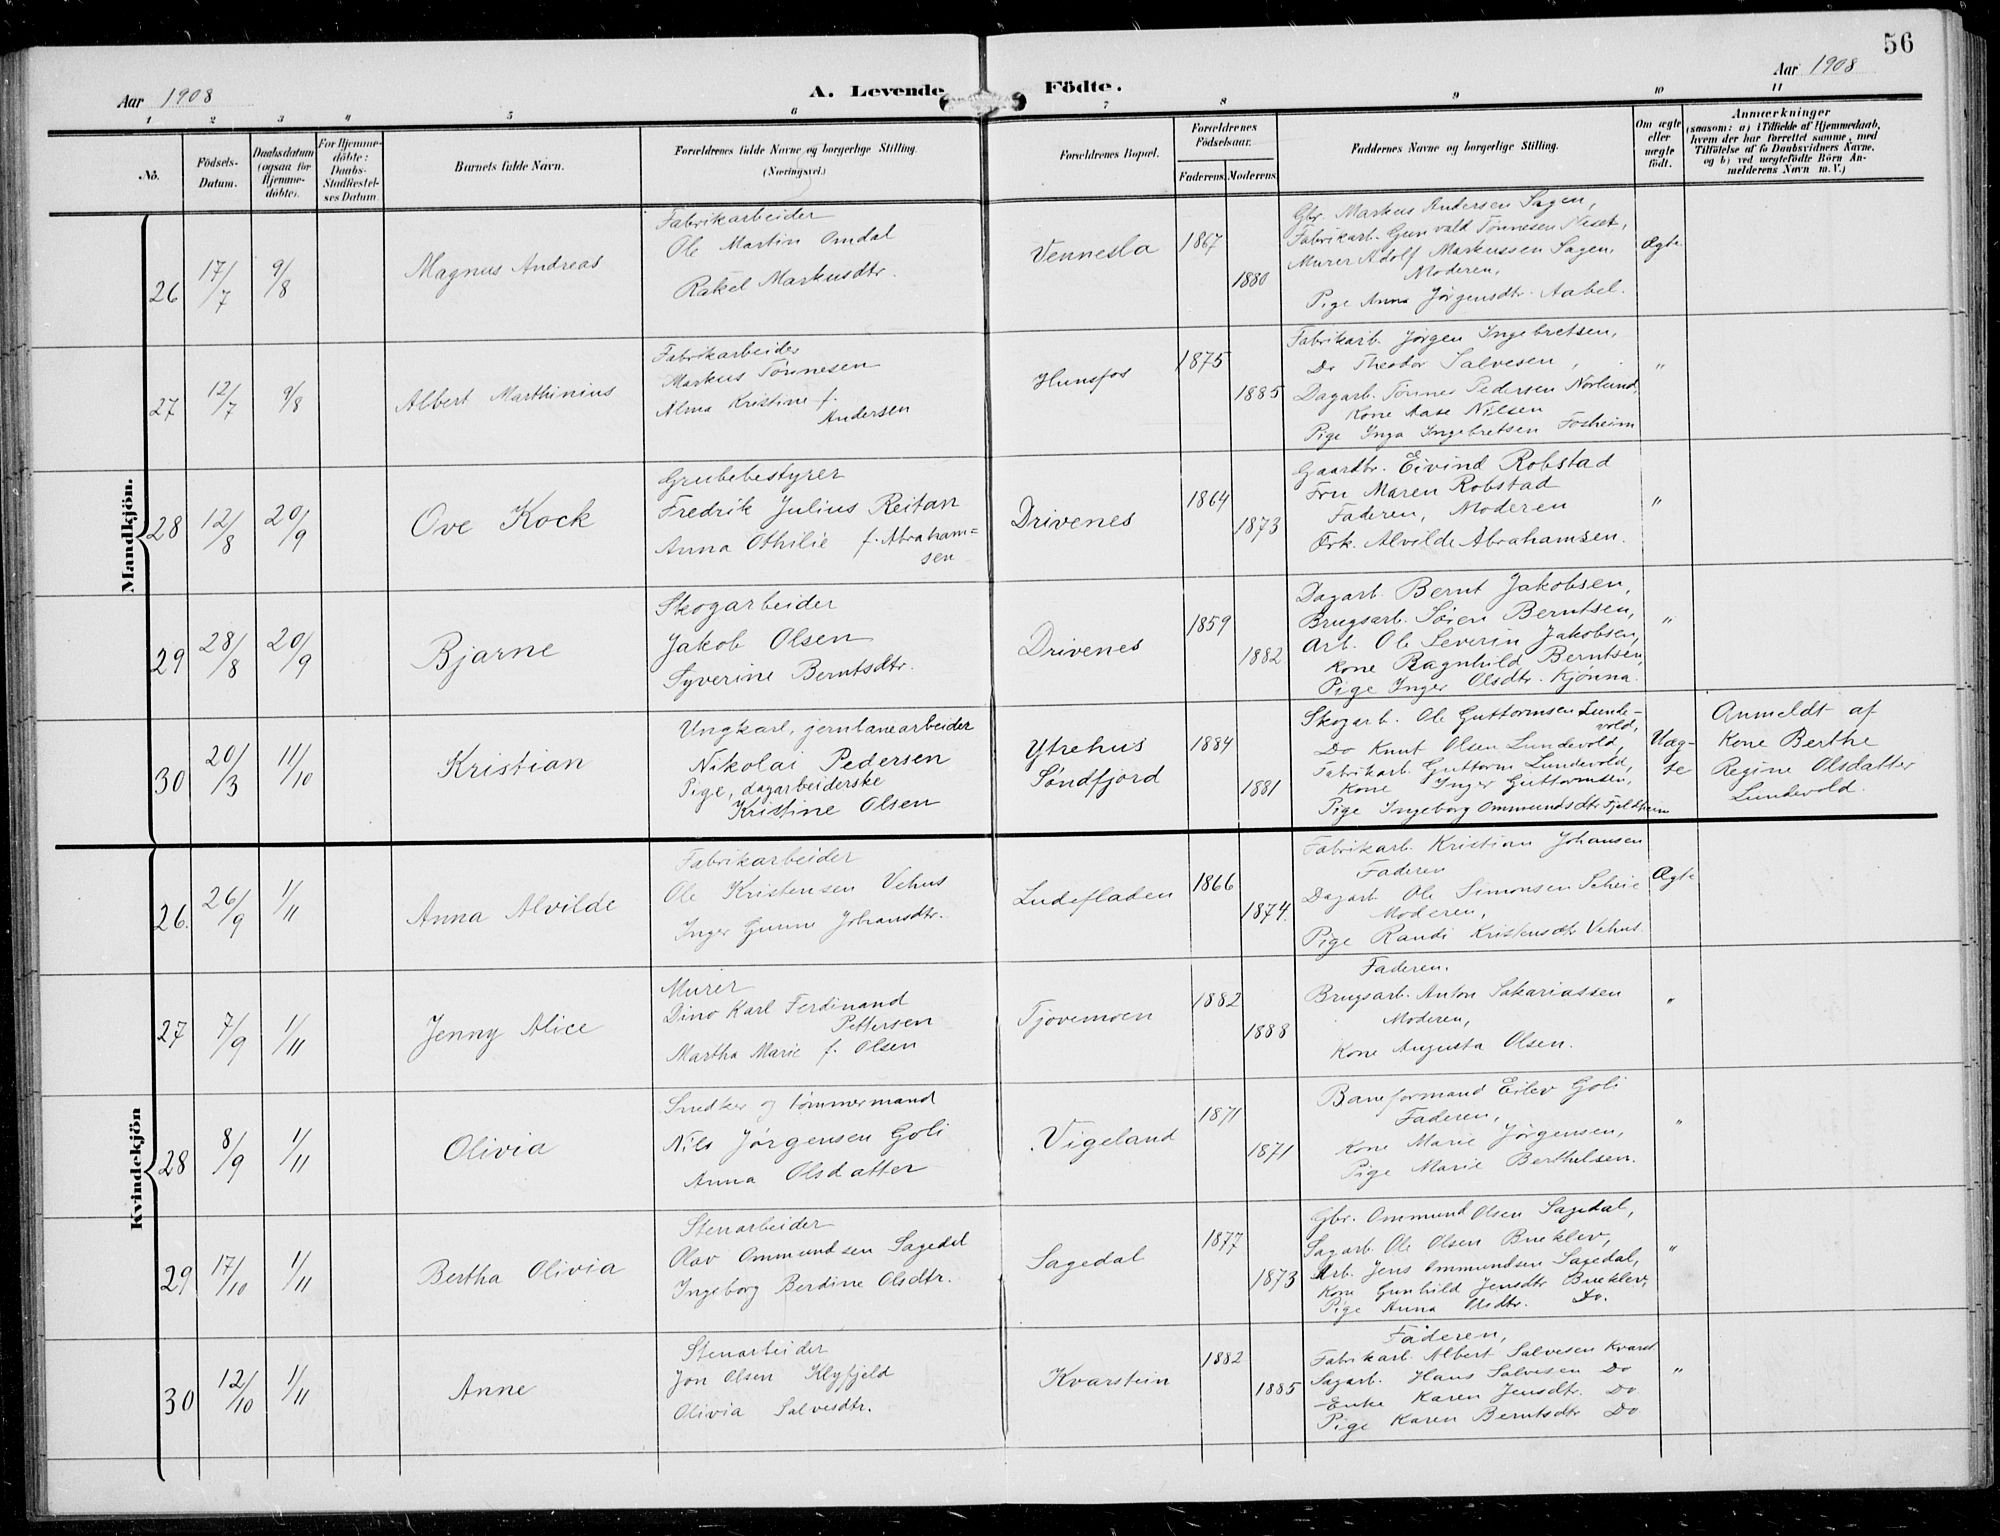 56
Aar 1908
A. Levende Födte.
Aar 1908
1 2 3 4 5 6 7 8 9 10 11
No.
Födsels-
Datum.
Daabsdatum
(ogsaa for
Hjemme-
döbte).
For Hjemme-
döbte:
Daabs-
Stadfæstel-
ses Datum.
Barnets fulde Navn.
Forældrenes fulde Navne og borgerlige Stilling.
(Næringsvei.)
Forældrenes Bopæl.
Forældrenes
Födselsaar.
Faderens. Moderens.
Faddernes Navne og borgerlige Stilling.
Om ægte
eller
uægte
födt.
Anmærkninger
(saasom: a) i Tilfælde af Hjemmedaab,
hvem der har forrettet samme, med
Tilföielse af to Daabsvidners Navne,
og b) ved uægtefödte Börn An-
melderens Navn m. V.)
Mandkjön.
26
17/7
9/8
Magnus Andreas
Fabrikarbeider
Ole Martin Omdal
Rakel Markusdtr.
Vennesla
1867
1880
Gbr. Markus Andersen Sagen,
Fabrikarb. Gunvald Tønnesen Neset,
Murer Adolf Markussen Sagen,
Moderen,
Pige Anna Jørgensdtr. Aabel.
Ægte
27
12/7
9/8
Albert Marthinius
Fabrikarbeider
Markus Tønnesen
Alma Kristine f.
Andersen
Hunsfos
1875
1885
Fabrikarb. Jørgen Ingebretsen,
Do Theodor Salvesen,
Dagarb. Tønnes Pedersen Norlund,
Kone Aase Nilsen
Pige Inga Ingebretsen Fosheim
"
28
12/8
20/9
Ove Kock
Grubebestyrer
Fredrik Julius Reitan
Anna Othilie f. Abraham=
sen
Drivenes
1864
1873
Gaardbr. Eivind Robstad
Fru Maren Robstad
Faderen, Moderen
Frk. Alvilde Abrahamsen.
"
29
28/8
20/9
Bjarne
Skogarbeider
Jakob Olsen
Syverine Berntsdtr.
Drivenes
1859
1882
Dagarb. Bernt Jakobsen,
Brugsarb. Søren Berntsen,
Arb. Ole Severin Jakobsen,
Kone Ragnhild Berntsen,
Pige Inger Olsdtr. Kjønna.
"
30
20/3
11/10
Kristian
Ungkarl, jernbanearbeider
Nikolai Pedersen
Pige, dagarbeiderske
Kristine Olsen
Ytrehus
Søndfjord
1884
1881
Skogarb. Ole Guttormsen Lunde-
vold,
Do Knut Olsen Lundevold,
Fabrikarb. Guttorm Lundevold,
Kone Inger Guttormsen,
Pige Ingeborg Ommundsdtr Fjeldheim
Uæg-
te
Anmeldt af
Kone Berthe
Regine Olsdatter
Lundevold.
Kvindekjön
26.
26/9
1/11
Anna Alvilde
Fabrikarbeider
Ole Kristensen Vehus
Inger Gunne Johansdtr.
Ludefladen
1866
1874.
Fabrikarb. Kristian Johansen
Faderen
Dagarb. Ole Simonsen Scheie
Moderen,
Pige Randi Kristensdtr Vehus.
Ægte
27
7/9
1/11
Jenny Alice
Murer
Dino Karl Ferdinand
Pettersen
Martha Marie f. Olsen
Tjovemoen
1882
1888
Faderen.
Brugsarb. Anton Sakariassen
Moderen,
Kone Augusta Olsen.
"
28
8/9
1/11
Olivia
Snedker og tømmermand
Nils Jørgensen Goli
Anna Olsdatter
Vigeland
1871
1871
Baneformand Eilev Goli
Faderen,
Kone Marie Jørgensen,
Pige Marie Berthelsen.
"
29
17/10
1/11
Bertha Olivia
Stenarbeider
Olav Ommundsen Sagedal
Ingeborg Berdine Olsdtr.
Sagedal
1877
1873
Gbr. Ommund Olsen Sagedal,
Sagarb. Ole Olsen Bueklev,
Arb. Jens Ommundsen Sagedal,
Kone Gunhild Jensdtr Bueklev,
Pige Anna Olsdtr. Do.
"
30
12/10
1/11
Anne
Stenarbeider
Jon Olsen Klyfjeld
Olivia Salvesdtr.
Kvarstein
1882
1885
Faderen,
Fabrikarb. Albert Salvesen Kvarst.
Sagarb. Hans Salvesen Do
Enke Karen Jensdtr. Do.
Pige Karen Berntsdtr Do
"